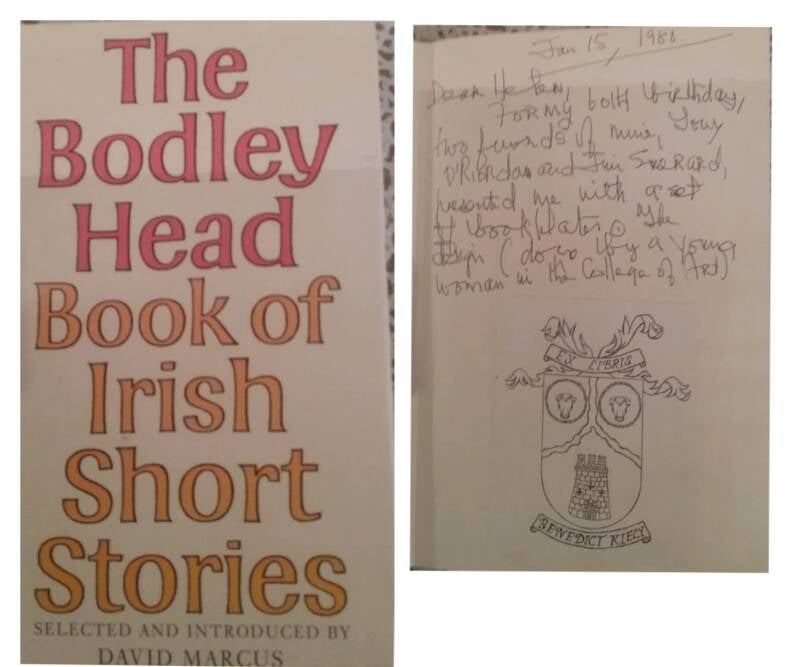 The
Bodley
Head
Book of
Irish
Short
Stories
SELECTED AND INTRODUCED BY
DAVID MARCUS
Jan 15, 1981.
Dear Helen,
FOR MY 60th birthday,
two friends of mine, Tony
O'Riordan and Jim
presented me with a set
of bookplates. The
design (done by a young
woman in the College of Art)
EX LIBRIS
BENEDICT KIELY